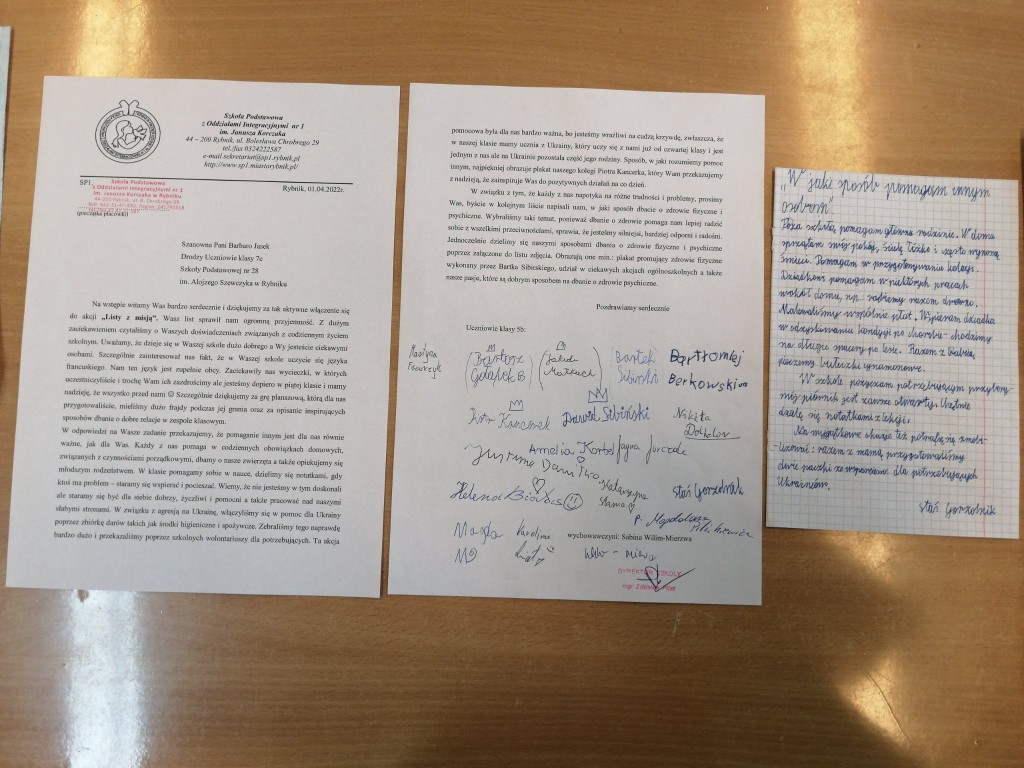 Szkoła Podstawowa
z Oddziałami Integracyjnymi nr 1
im. Janusza Korczaka
44 – 200 Rybnik, ul. Bolesława Chrobrego 29
tel./fax 0324222587
e-mail sekretariat@sp1.rybnik.pl
http://www.sp1.miastorybnik.pl/
SP1
Szkoła Podstawowa
z Oddziałami Integracyjnymi nr 1
im. Janusza Korczaka w Rybniku
44-200 Rybnik, ul. B. Chrobrego 29
(pieczątka placówki)
Rybnik, 01.04.2022r.
Szanowna Pani Barbaro Jasek
Drodzy Uczniowie klasy 7c
Szkoły Podstawowej nr 28
im. Alojzego Szewczyka w Rybniku
Na wstępie witamy Was bardzo serdecznie i dziękujemy za tak aktywne włączenie się
do akcji „Listy z misją”. Wasz list sprawił nam ogromną przyjemność. Z dużym
zaciekawieniem czytaliśmy o Waszych doświadczeniach związanych z codziennym życiem
szkolnym. Uważamy, że dzieje się w Waszej szkole dużo dobrego a Wy jesteście ciekawymi
osobami. Szczególnie zainteresował nas fakt, że w Waszej szkole uczycie się języka
francuskiego. Nam ten język jest zupełnie obcy. Zaciekawiły nas wycieczki, w których
uczestniczyliście i trochę Wam ich zazdrościmy ale jesteśmy dopiero w piątej klasie i mamy
nadzieję, że wszystko przed nami ☺ Szczególnie dziękujemy za grę planszową, którą dla nas
przygotowaliście, mieliśmy dużo frajdy podczas jej grania oraz za opisanie inspirujących
sposobów dbania o dobre relacje w zespole klasowym.
W odpowiedzi na Wasze zadanie przekazujemy, że pomaganie innym jest dla nas równie
ważne, jak dla Was. Każdy z nas pomaga w codziennych obowiązkach domowych,
związanych z czynnościami porządkowymi, dbamy o nasze zwierzęta a także opiekujemy się
młodszym rodzeństwem. W klasie pomagamy sobie w nauce, dzielimy się notatkami, gdy
ktoś ma problem – staramy się wspierać i pocieszać. Wiemy, że nie jesteśmy w tym doskonali
ale staramy się być dla siebie dobrzy, życzliwi i pomocni a także pracować nad naszymi
słabymi stronami. W związku z agresją na Ukrainę, włączyliśmy się w pomoc dla Ukrainy
poprzez zbiórkę darów takich jak środki higieniczne i spożywcze. Zebraliśmy tego naprawdę
bardzo dużo i przekazaliśmy poprzez szkolnych wolontariuszy dla potrzebujących. Ta akcja
pomocowa była dla nas bardzo ważna, bo jesteśmy wrażliwi na cudzą krzywdę, zwłaszcza, że
w naszej klasie mamy ucznia z Ukrainy, który uczy się z nami już od czwartej klasy i jest
jednym z nas ale na Ukrainie pozostała część jego rodziny. Sposób, w jaki rozumiemy pomoc
innym, najpiękniej obrazuje plakat naszego kolegi Piotra Kancerka, który Wam przekazujemy
z nadzieją, że zainspiruje Was do pozytywnych działań na co dzień.
W związku z tym, że każdy z nas napotyka na różne trudności i problemy, prosimy
Was, byście w kolejnym liście napisali nam, w jaki sposób dbacie o zdrowie fizyczne i
psychiczne. Wybraliśmy taki temat, ponieważ dbanie o zdrowie pomaga nam lepiej radzić
sobie z wszelkimi przeciwnościami, sprawia, że jesteśmy silniejsi, bardziej odporni i radośni.
Jednocześnie dzielimy się naszymi sposobami dbania o zdrowie fizyczne i psychiczne
poprzez załączone do listu zdjęcia. Obrazują one min.: plakat promujący zdrowie fizyczne
wykonany przez Bartka Sibińskiego, udział w ciekawych akcjach ogólnoszkolnych a także
nasze pasje, które są dobrym sposobem na dbanie o zdrowie psychiczne.
Pozdrawiamy serdecznie
Uczniowie klasy 5b:
Martyna
Bartek
Sibiński
Bartłomiej
Berkowski
Piotr Kancerek
Dawid Sibiński
Nikita
Amelia
Justyna
Helena
Katarzyna
Staś Gorzolnik
p. Magdalena
Magda
Karolina
wychowawczyni: Sabina Wilim-Mierzwa
DYREKTOR SZKOŁY
„W jaki sposób pomagam innym
osobom”
Poza szkołą, pomagam głównie rodzinie. W domu
sprzątam swój pokój, ścielę łóżko i często wynoszę
śmieci. Pomagam w przygotowywaniu kolacji.
Dziadkom pomagam w niektórych pracach
wokół domu, np. rąbiemy razem drewno.
Malowaliśmy wspólnie płot. Wspieram dziadka
w odzyskiwaniu kondycji po chorobie - chodzimy
na długie spacery po lesie. Razem z babcią
pieczemy bułeczki cynamonowe.
W szkole pożyczam potrzebującym przybory -
mój piórnik jest zawsze otwarty. Chętnie
dzielę się notatkami z lekcji.
Na wyjątkowe okazje też potrafię się zmobi-
lizować: razem z mamą przygotowaliśmy
dwie paczki ze wsparciem dla potrzebujących
Ukraińców.
Staś Gorzolnik